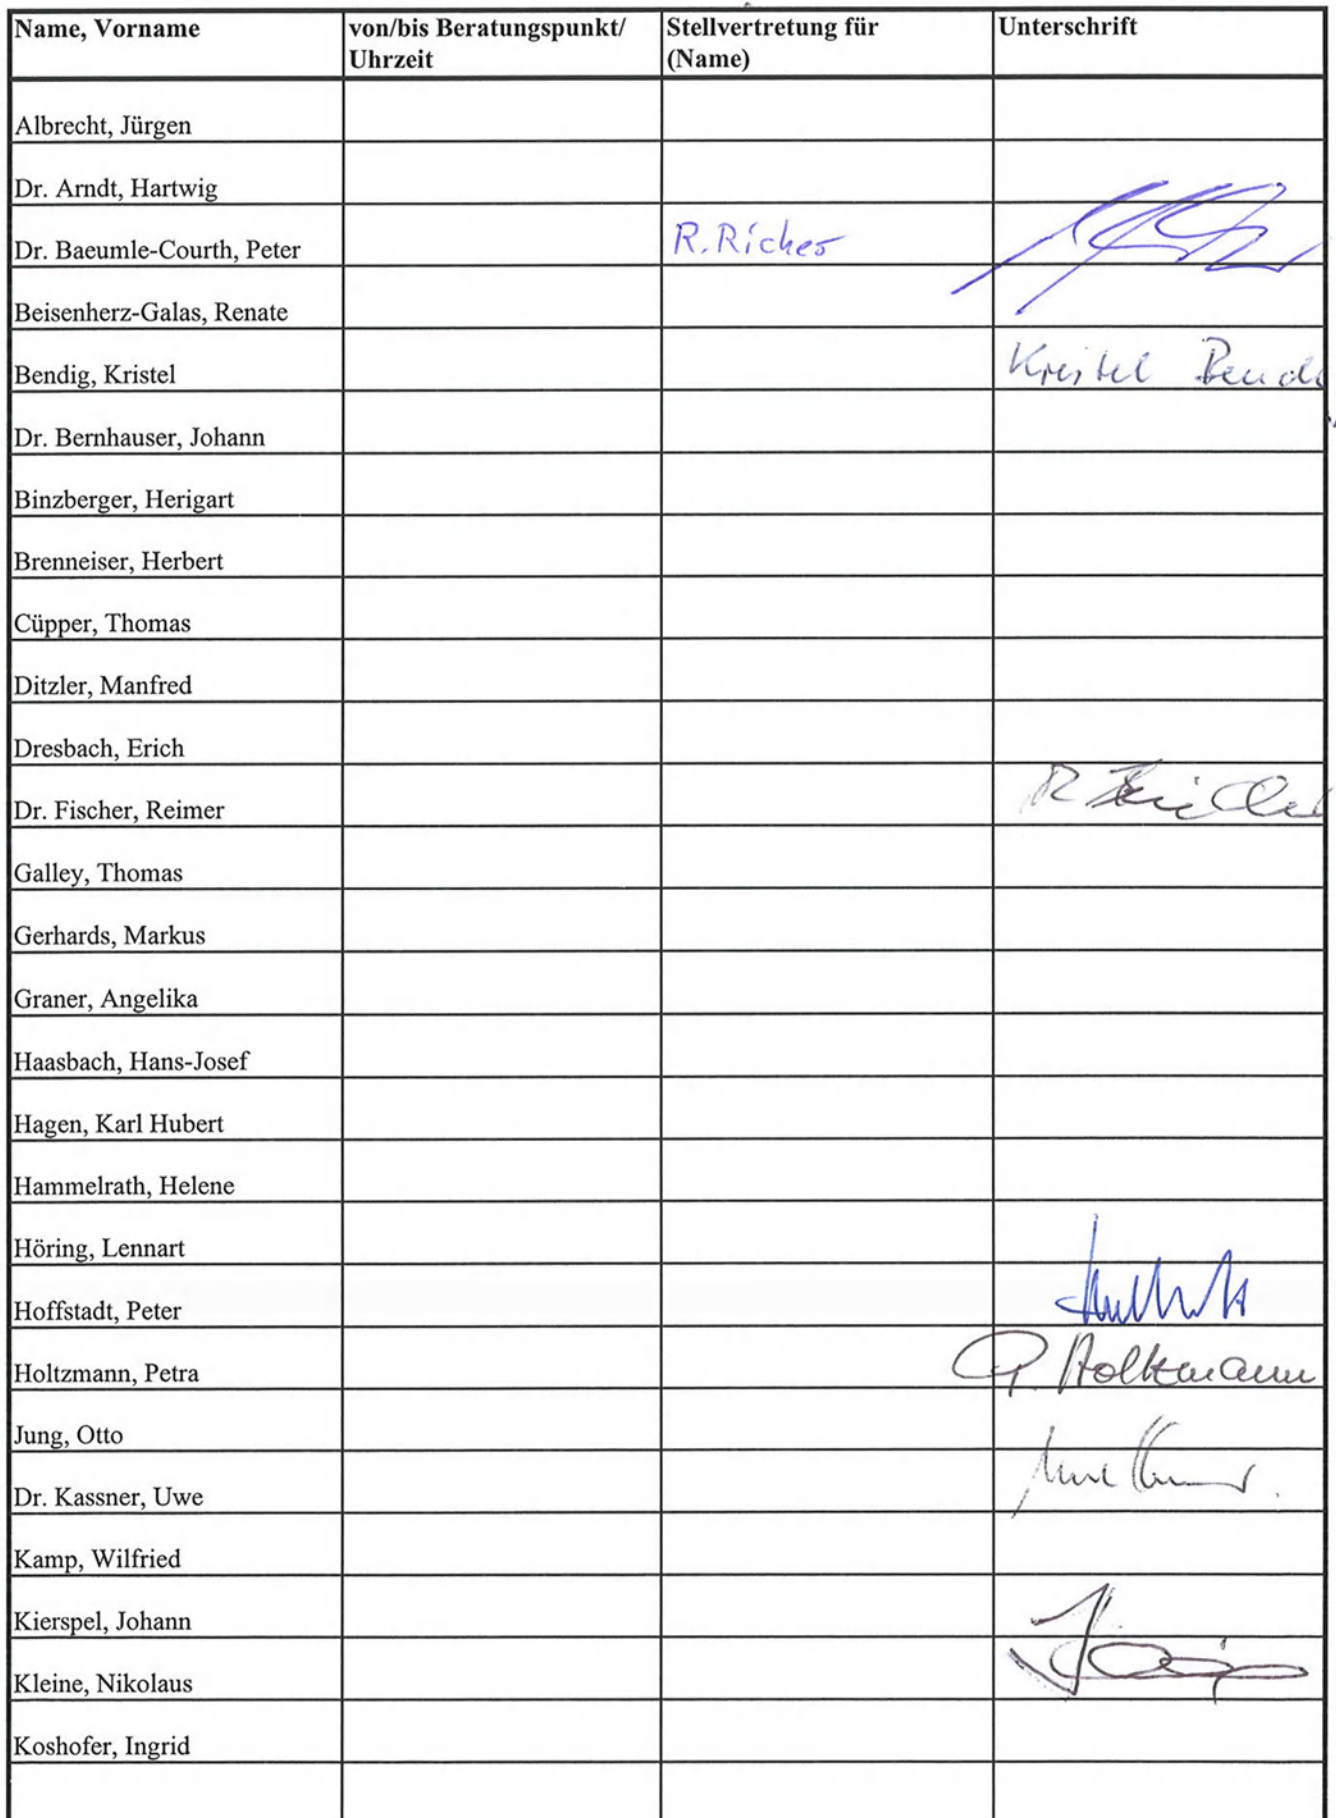 Name, Vorname von/bis Beratungspunkt/ Stellvertretung für Unterschrift
Uhrzeit (Name)
Albrecht, Jürgen
Dr. Arndt, Hartwig
Dr. Baeumle-Courth, Peter R. Richer
Beisenherz-Galas, Renate
Bendig, Kristel Kristel Bend
Dr. Bernhauser, Johann
Binzberger, Herigart
Brenneiser, Herbert
Cüpper, Thomas
Ditzler, Manfred
Dresbach, Erich
Dr. Fischer, Reimer
Galley, Thomas
Gerhards, Markus
Graner, Angelika
Haasbach, Hans-Josef
Hagen, Karl Hubert
Hammelrath, Helene
Höring, Lennart
Hoffstadt, Peter
Holtzmann, Petra P. Holtzmann
Jung, Otto
Dr. Kassner, Uwe
Kamp, Wilfried
Kierspel, Johann
Kleine, Nikolaus
Koshofer, Ingrid